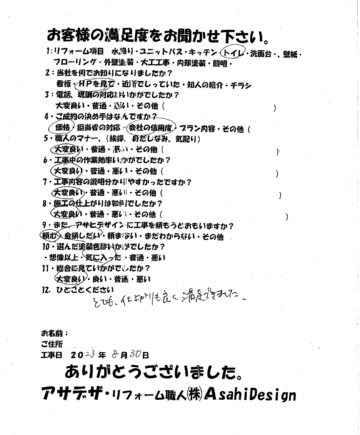 お客様の満足度をお聞かせ下さい。
1:リフォーム項目 水漏り・ユニットバス・キッチン・トイレ・洗面台・、壁紙・
フローリング・外壁塗装・大工工事・内部塗装・照明・
2:当社を何でお知りになりましたか?
看板・HPを見て・近所でしっていた・知人の紹介・チラシ
3:電話、現調の対応はいかがでしたか?
大変良い・普通・悪い・その他( )
4:ご成約の決め手はなんですか?
価格・担当者の対応・会社の信用度・プラン内容・その他( )
5:職人のマナー、(挨拶、身だしなみ、気配り)
大変良い・普通・悪い・その他( )
6:工事中の作業効率いかがでしたか?
大変良い・普通・悪い・その他( )
7:工事内容の説明分かりやすかったですか?
大変良い・普通・悪い・その他( )
8:施工の仕上がりは如何でしたか?
大変良い・普通・悪い・その他( )
9・また、アサヒデザインに工事を頼もうとおもいますか?
頼む・金額しだい・頼まない・まだわからない・その他
10・選んだ塗装色はいかがでしたか?
・想像以上・気に入った・普通・悪い
11・総合に見ていかがでしたか?
大変良い・良い・普通・悪い
12. ひとことください
とても、仕上がりも良く満足できました。
お名前:
ご住所
工事日 2023年 8月30日
ありがとうございました。
アサデザ・リフォーム職人㈱AsahiDesign